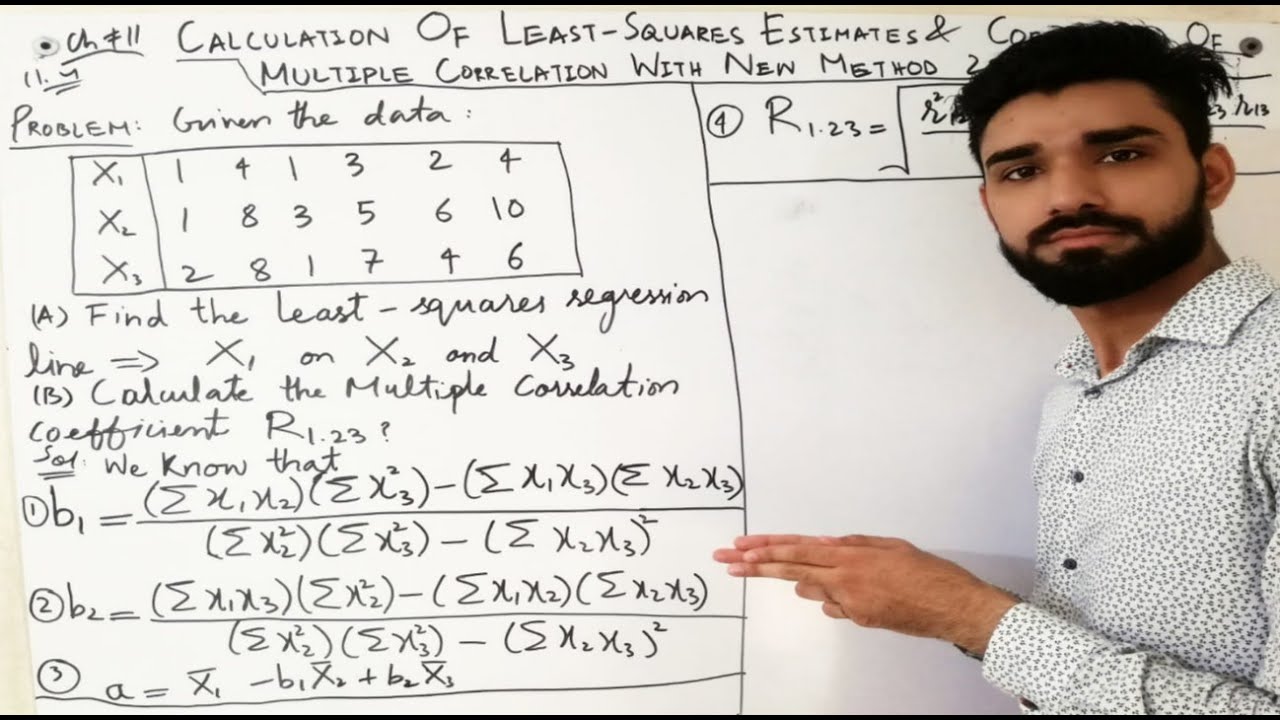 Ch # 11 CALCULATION OF LEAST-SQUARES ESTIMATES & OF
11.4 MULTIPLE CORRELATION WITH NEW METHOD 2
PROBLEM: Given the data:
X₁ 1 4 1 3 2 4
X₂ 1 8 3 5 6 10
X₃ 2 8 1 7 4 6
(A) Find the Least-squares regression
line ⇒ X₁ on X₂ and X₃
(B) Calculate the Multiple Correlation
coefficient R₁.₂₃?
Sol: We Know that
① b₁ = (Σx₁x₂)(Σx₃²) − (Σx₁x₃)(Σx₂x₃)
(Σx₂²)(Σx₃²) − (Σx₂x₃)²
② b₂ = (Σx₁x₃)(Σx₂²) − (Σx₁x₂)(Σx₂x₃)
(Σx₂²)(Σx₃²) − (Σx₂x₃)²
③ a = X̄₁ − b₁X̄₂ + b₂X̄₃
④ R₁.₂₃ = √ r² r₁₃